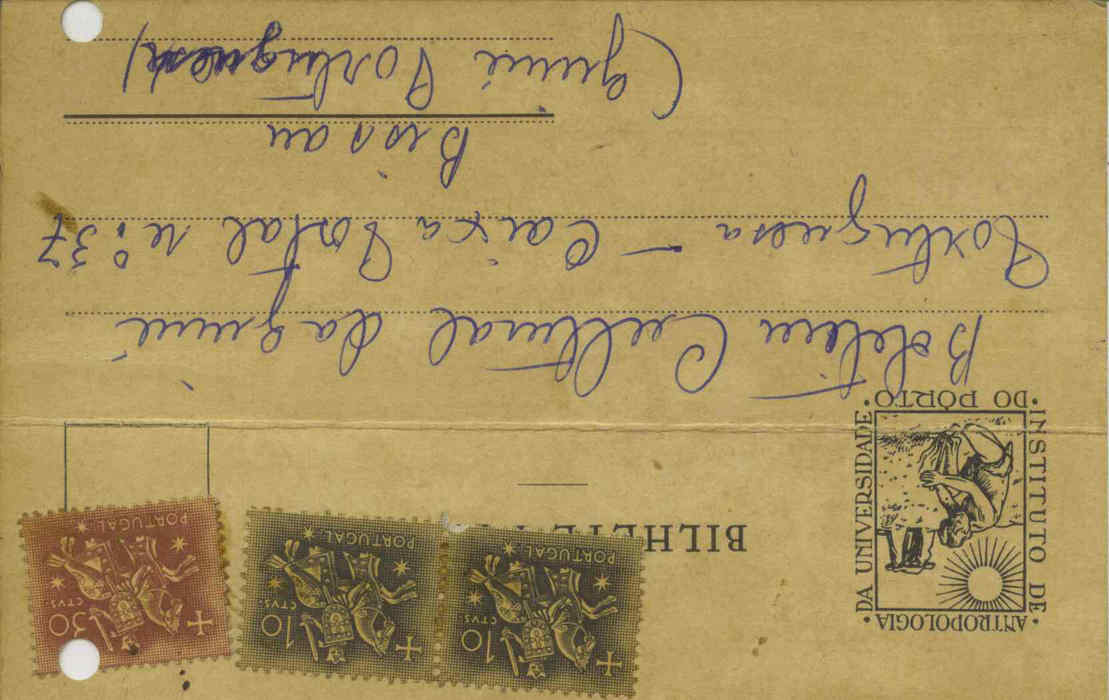 INSTITUTO DE
ANTROPOLOGIA
DA UNIVERSIDADE
DO PÔRTO
BILHETE
PORTUGAL
10
CTVS
PORTUGAL
10
CTVS
PORTUGAL
30
CTVS
Boletim Cultural da Guiné
Portuguesa – Caixa Postal nº 37
Bissau
(Guiné Portuguesa)